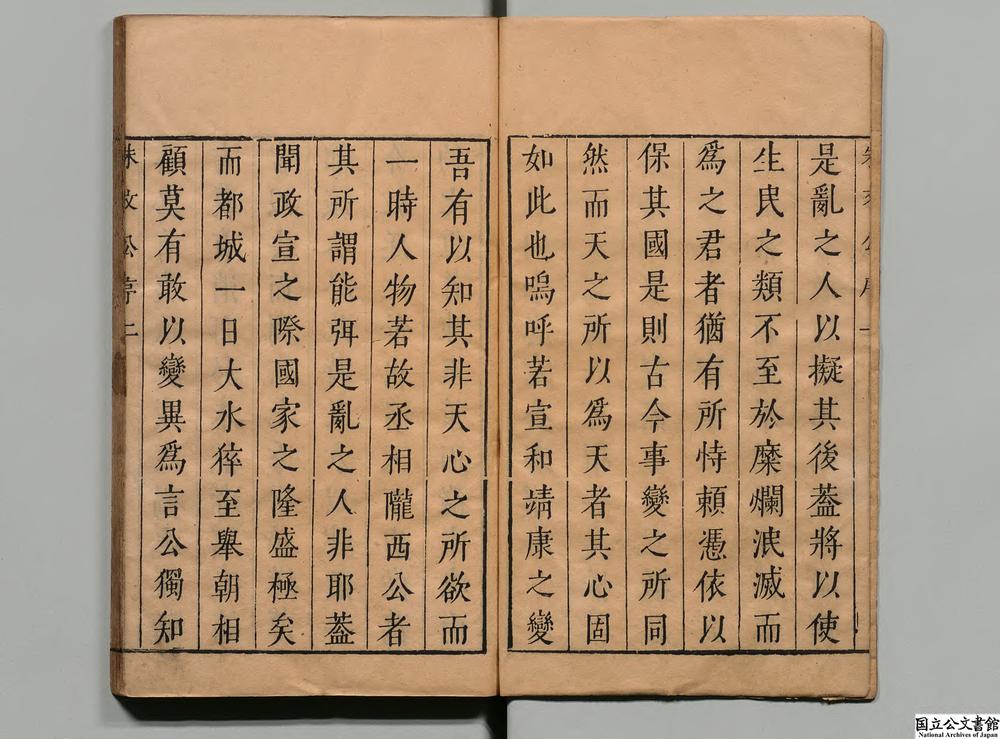 是亂之人以擬其後葢將以使
生民之類不至於糜爛泯滅而
爲之君者猶有所恃賴憑依以
保其國是則古今事變之所同
然而天之所以爲天者其心固
如此也嗚呼若宣和靖康之變
吾有以知其非天心之所欲而
一時人物若故丞相隴西公者
其所謂能弭是亂之人非耶葢
聞政宣之際國家之隆盛極矣
而都城一日大水猝至舉朝相
顧莫有敢以變異爲言公獨知
国立公文書館
National Archives of Japan